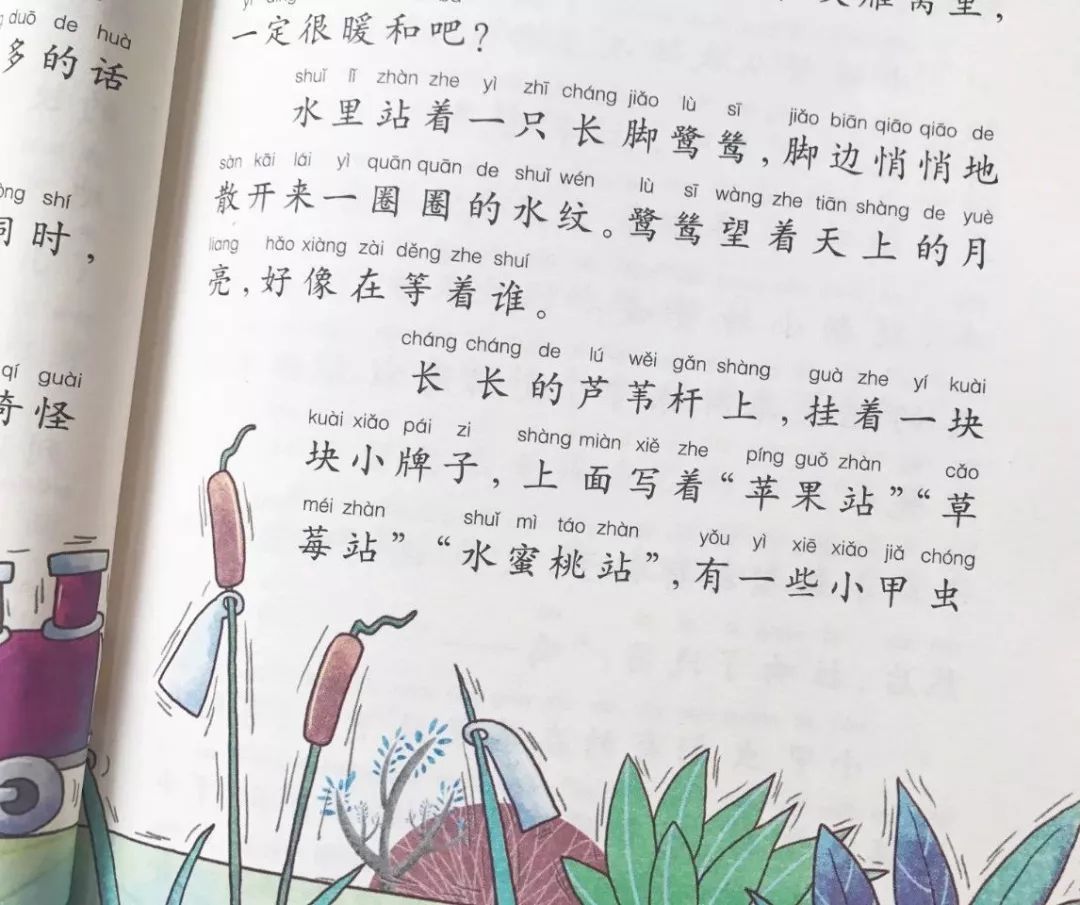 duō de huà
多的话
shí
时，
qí guài
怪
窝里，
一定很暖和吧？
shuǐ lǐ zhàn zhe yì zhī cháng jiǎo lù sī jiǎo biān qiāo qiāo de
水里站着一只长脚鹭鸶，脚边悄悄地
sàn kāi lái yì quān quān de shuǐ wén lù sī wàng zhe tiān shàng de yuè
散开来一圈圈的水纹。鹭鸶望着天上的月
liang hǎo xiàng zài děng zhe shuí
亮，好像在等着谁。
cháng cháng de lú wěi gǎn shàng guà zhe yí kuài
长长的芦苇杆上，挂着一块
kuài xiǎo pái zi shàng miàn xiě zhe píng guǒ zhàn cǎo
块小牌子，上面写着“苹果站”“草
méi zhàn shuǐ mì táo zhàn yǒu yì xiē xiǎo jiǎ chóng
莓站”“水蜜桃站”，有一些小甲虫